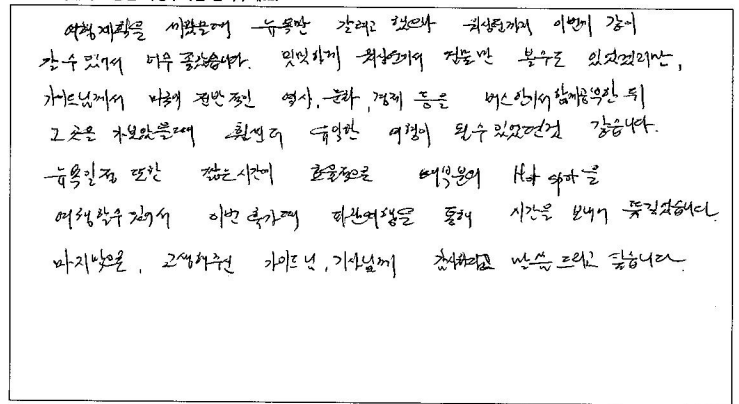 여행계획을 세웠을때 뉴욕만 갈려고 했으나 워싱턴까지 이번에 같이
갈 수 있어서 너무 좋았습니다. 밋밋하게 워싱턴에서 건물만 볼수도 있었겠지만,
가이드님께서 미국에 전반적인 역사, 문화, 경제 등을 버스안에서 함께공부한 뒤
그 곳을 가보았을때에 훨씬더 유익한 여행이 될 수 있었던것 같습니다.
뉴욕일정 또한 짧은시간에 효율적으로 대부분의 Hot spot을
여행할수 있어서 이번 휴가때 여행을 통해 시간을 보내어 뜻깊었습니다.
마지막으로, 고생해주신 가이드님, 기사님께 감사하다고 말씀드리고 싶습니다.